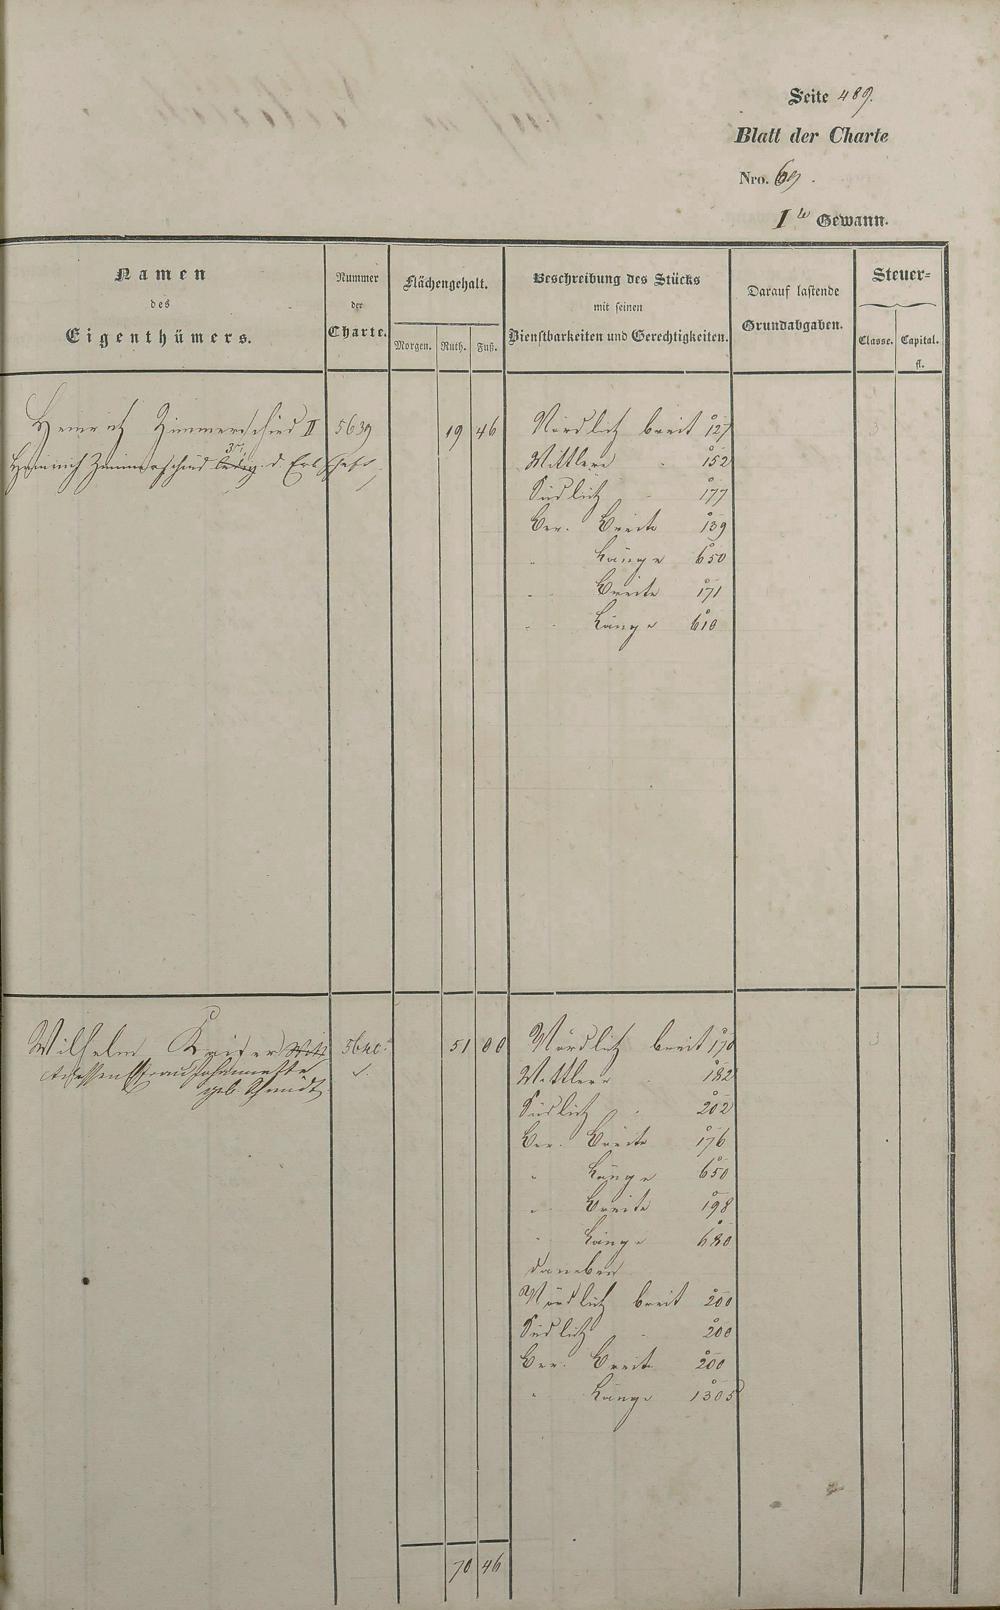 Seite 489.
Blatt der Charte
Nro. 69.
1te Gewann.
Namen
des
Eigenthümers.
Nummer
der
Charte.
Flächengehalt.
Morgen. Ruth. Fuß.
Beschreibung des Stücks
mit seinen
Dienstbarkeiten und Gerechtigkeiten.
Darauf lastende
Grundabgaben.
Steuer=
Classe. Capital.
fl.
Heinrich Zimmerschied II 5639 19 46 Nördlich breit 127
3r.
Heinrich Zimmerschied ledig. d. Erbschaft
Mittlere " 152
Südlich " 177
Ber. Breite 139
" Länge 650
" Breite 171
" Länge 610
Wilhelm Kaiser 5640. 51 00 Nördlich breit 170
dessen Ehefrau Johannette
geb. Schmidt
Mittlere " 182
Südlich " 202
Ber. Breite 176
" Länge 650
" Breite 198
" Länge 680
daneben
Nördlich breit 200
Südlich " 200
Ber. Breite 200
" Länge 1305
70 46